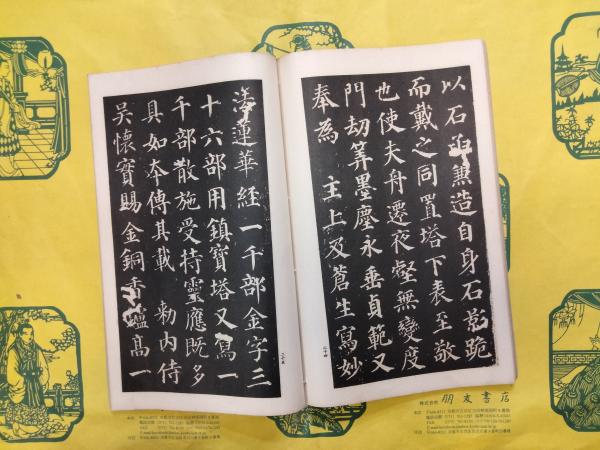 以石函兼造自身石影跪
而戴之同置塔下表至敬
也使夫舟遷夜壑無變度
門劫筭墨塵永垂貞範又
奉為 主上及蒼生寫妙
二十四
法蓮華經一千部金字三
十六部用鎮寶塔又寫一
千部散施受持靈應既多
具如本傳其載 勑內侍
吳懷實賜金銅香爐高一
二十五
株式会社 朋友書店